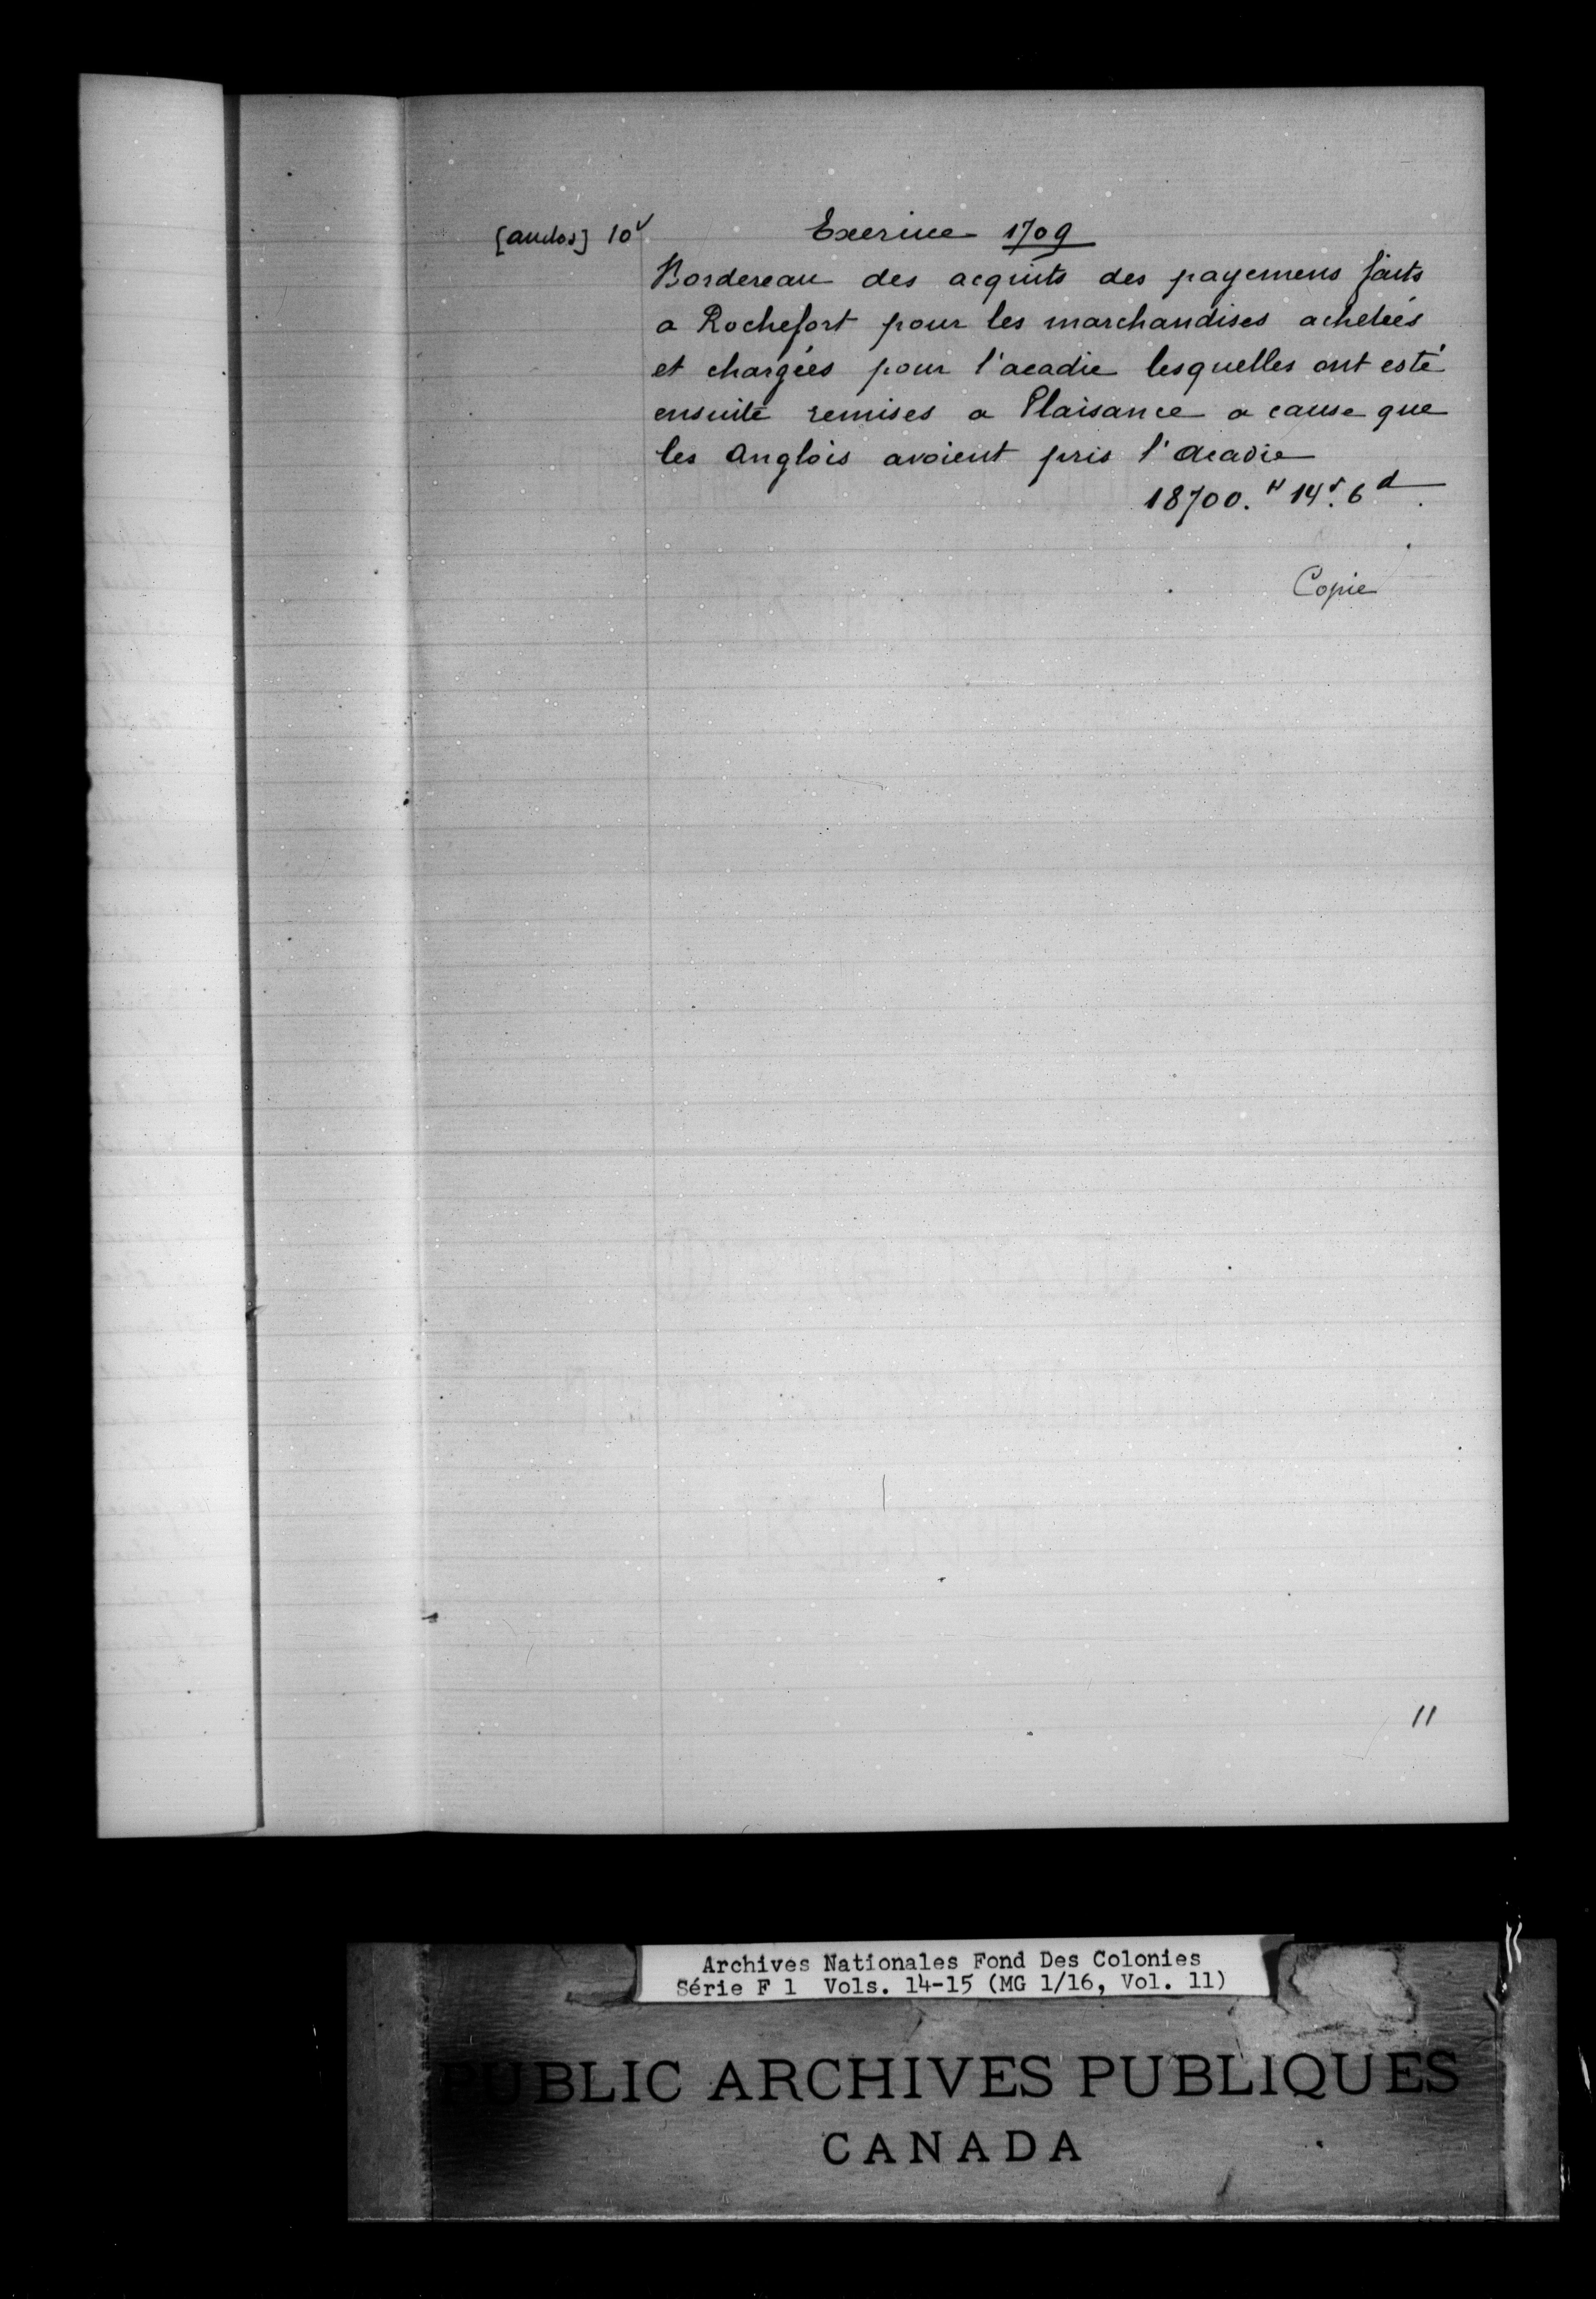 [au dos] 10v
Exercice 1709
Bordereau des acquits des payemens faits
a Rochefort pour les marchandises achetées
et chargées pour l'acadie lesquelles ont esté
ensuite remises a Plaisance a cause que
les Anglois avoient pris l'Acadie
18700.tt 14s. 6d.
Copie
11
Archives Nationales Fond Des Colonies
Série F 1 Vols. 14-15 (MG 1/16, Vol. 11)
PUBLIC ARCHIVES PUBLIQUES
CANADA